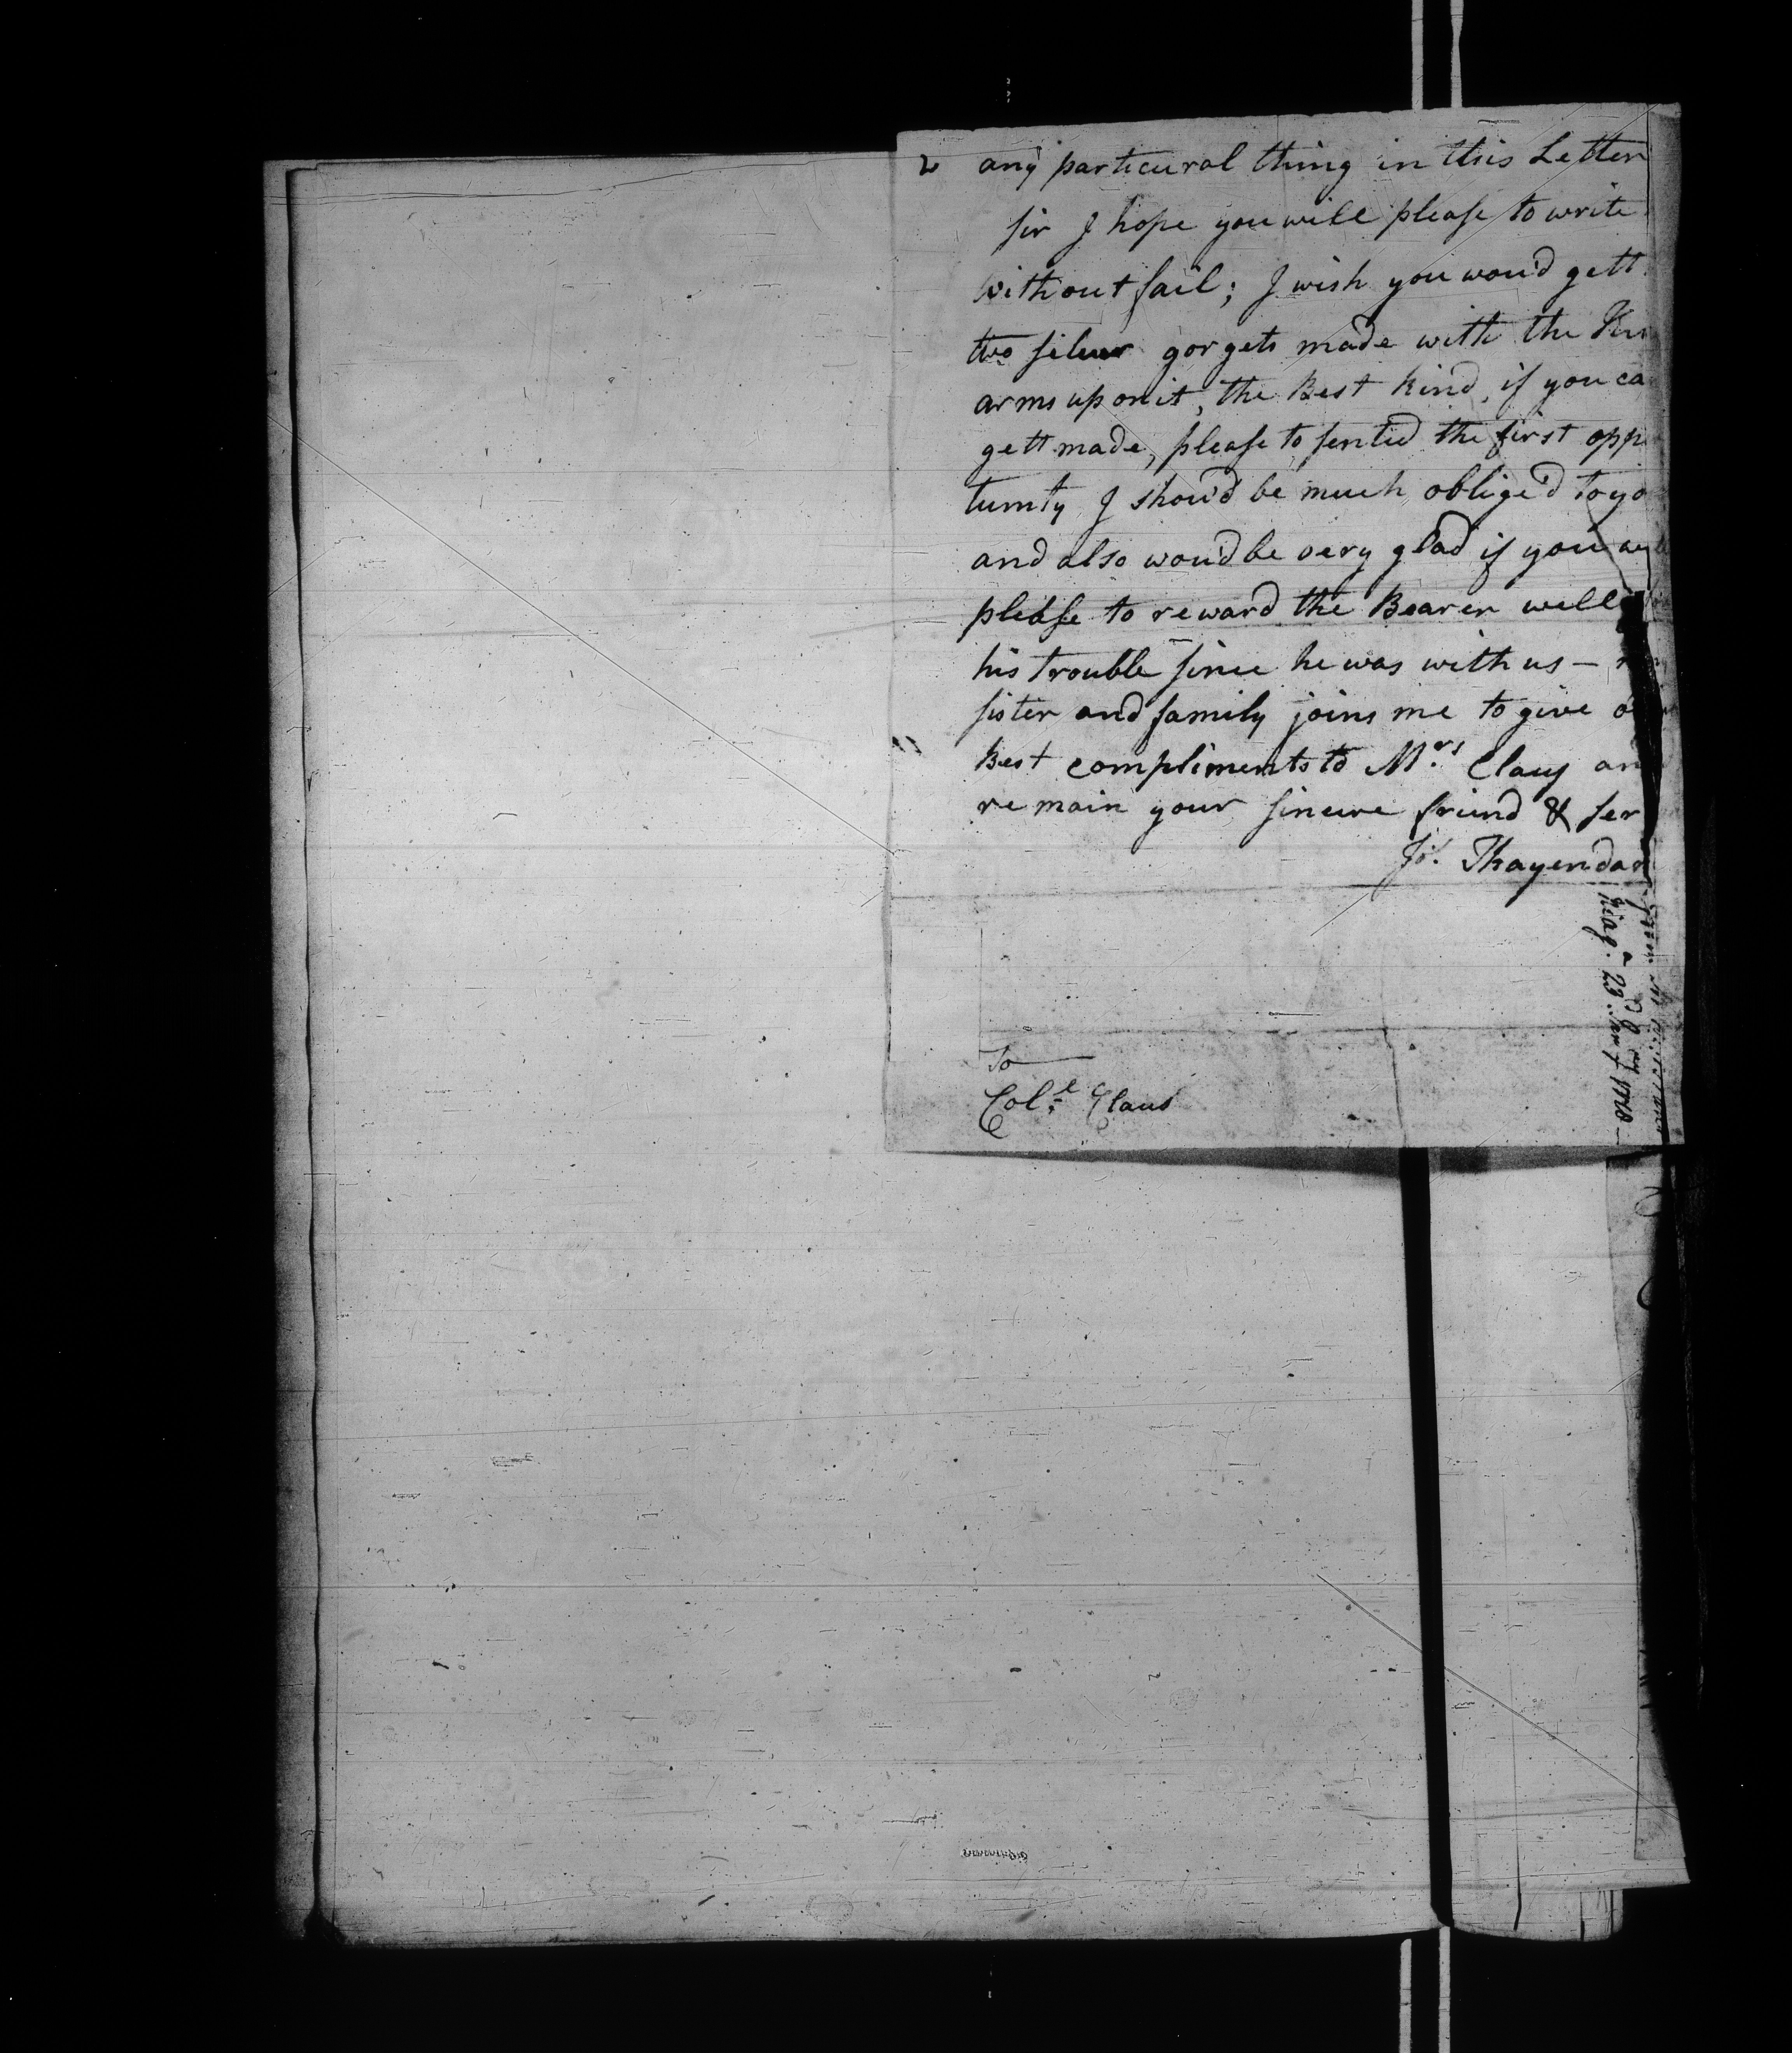 any particural thing in this Letter
sir I hope you will please to write
without fail; I wish you wou'd gett
two silver gorgets made with the
arms upon it, the Best kind, if you ca
gett made, please to sentid the first opp
turnty I shou'd be much oblige'd to yo
and also wou'd be very glad if you
please to reward the Bearer well
his trouble since he was with us –
sister and family joins me to give
Best compliments to Mrs Claus an
remain your sincere friend & ser
Jos. Thayendan
To
Coll. Claus